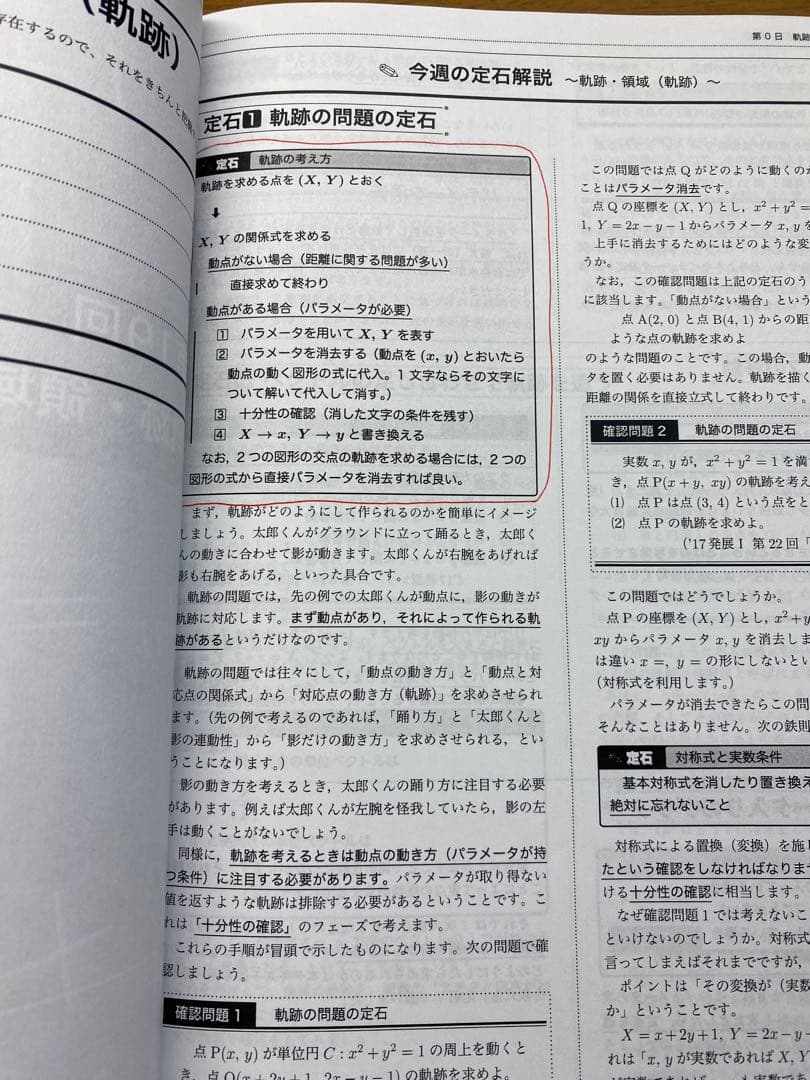 （軌跡）
存在するので、それをきちんと把握
第0日 軌跡
今週の定石解説 ～軌跡・領域（軌跡）～
定石1 軌跡の問題の定石
定石 軌跡の考え方
軌跡を求める点を (X, Y) とおく
↓
X, Y の関係式を求める
動点がない場合（距離に関する問題が多い）
直接求めて終わり
動点がある場合（パラメータが必要）
1 パラメータを用いて X, Y を表す
2 パラメータを消去する（動点を (x, y) とおいたら
動点の動く図形の式に代入。1文字ならその文字に
ついて解いて代入して消す。）
3 十分性の確認（消した文字の条件を残す）
4 X → x, Y → y と書き換える
なお，2つの図形の交点の軌跡を求める場合には，2つの
図形の式から直接パラメータを消去すれば良い。
まず，軌跡がどのようにして作られるのかを簡単にイメージ
しましょう。太郎くんがグラウンドに立って踊るとき，太郎く
んの動きに合わせて影が動きます。太郎くんが右腕をあげれば
影も右腕をあげる，といった具合です。
軌跡の問題では，先の例での太郎くんが動点に，影の動きが
軌跡に対応します。まず動点があり，それによって作られる軌
跡があるというだけなのです。
軌跡の問題では往々にして，「動点の動き方」と「動点と対
応点の関係式」から「対応点の動き方（軌跡）」を求めさせられ
ます。（先の例で考えるのであれば，「踊り方」と「太郎くんと
影の連動性」から「影だけの動き方」を求めさせられる，とい
うことになります。）
影の動き方を考えるとき，太郎くんの踊り方に注目する必要
があります。例えば太郎くんが左腕を怪我していたら，影の左
手は動くことがないでしょう。
同様に，軌跡を考えるときは動点の動き方（パラメータが持
つ条件）に注目する必要があります。パラメータが取り得ない
値を返すような軌跡は排除する必要があるということです。こ
れは「十分性の確認」のフェーズで考えます。
これらの手順が冒頭で示したものになります。次の問題で確
認しましょう。
確認問題1 軌跡の問題の定石
点 P(x, y) が単位円 C : x² + y² = 1 の周上を動くと
き，点 Q(x + 2y + 1, 2x − y − 1) の軌跡を求めよ。
この問題では点 Q がどのように動くのか
ことはパラメータ消去です。
点 Q の座標を (X, Y) とし，x² + y² =
1, Y = 2x − y − 1 からパラメータ x, y を
上手に消去するためにはどのような変
うか。
なお，この確認問題は上記の定石のう
に該当します。「動点がない場合」という
点 A(2, 0) と点 B(4, 1) からの距
ような点の軌跡を求めよ
のような問題のことです。この場合，動
タを置く必要はありません。軌跡を描く
距離の関係を直接立式して終わりです。
確認問題2 軌跡の問題の定石
実数 x, y が，x² + y² = 1 を満
き，点 P(x + y, xy) の軌跡を考え
(1) 点 P は点 (3, 4) という点をと
(2) 点 P の軌跡を求めよ。
('17 発展 I 第 22 回「
この問題ではどうでしょうか。
点 P の座標を (X, Y) とし，x² + y
xy からパラメータ x, y を消去しま
は違い x =, y = の形にしないとい
（対称式を利用します。）
パラメータが消去できたらこの問
そんなことはありません。次の鉄則
定石 対称式と実数条件
基本対称式を消したり置き換え
絶対に忘れないこと
対称式による置換（変換）を施し
たという確認をしなければなります
ける十分性の確認に相当します。
なぜ確認問題1では考えないこ
といけないのでしょうか。対称式
言ってしまえばそれまでですが，
ポイントは「その変換が（実数
か」ということです。
X = x + 2y + 1, Y = 2x − y −
れは「x, y が実数であれば X, Y